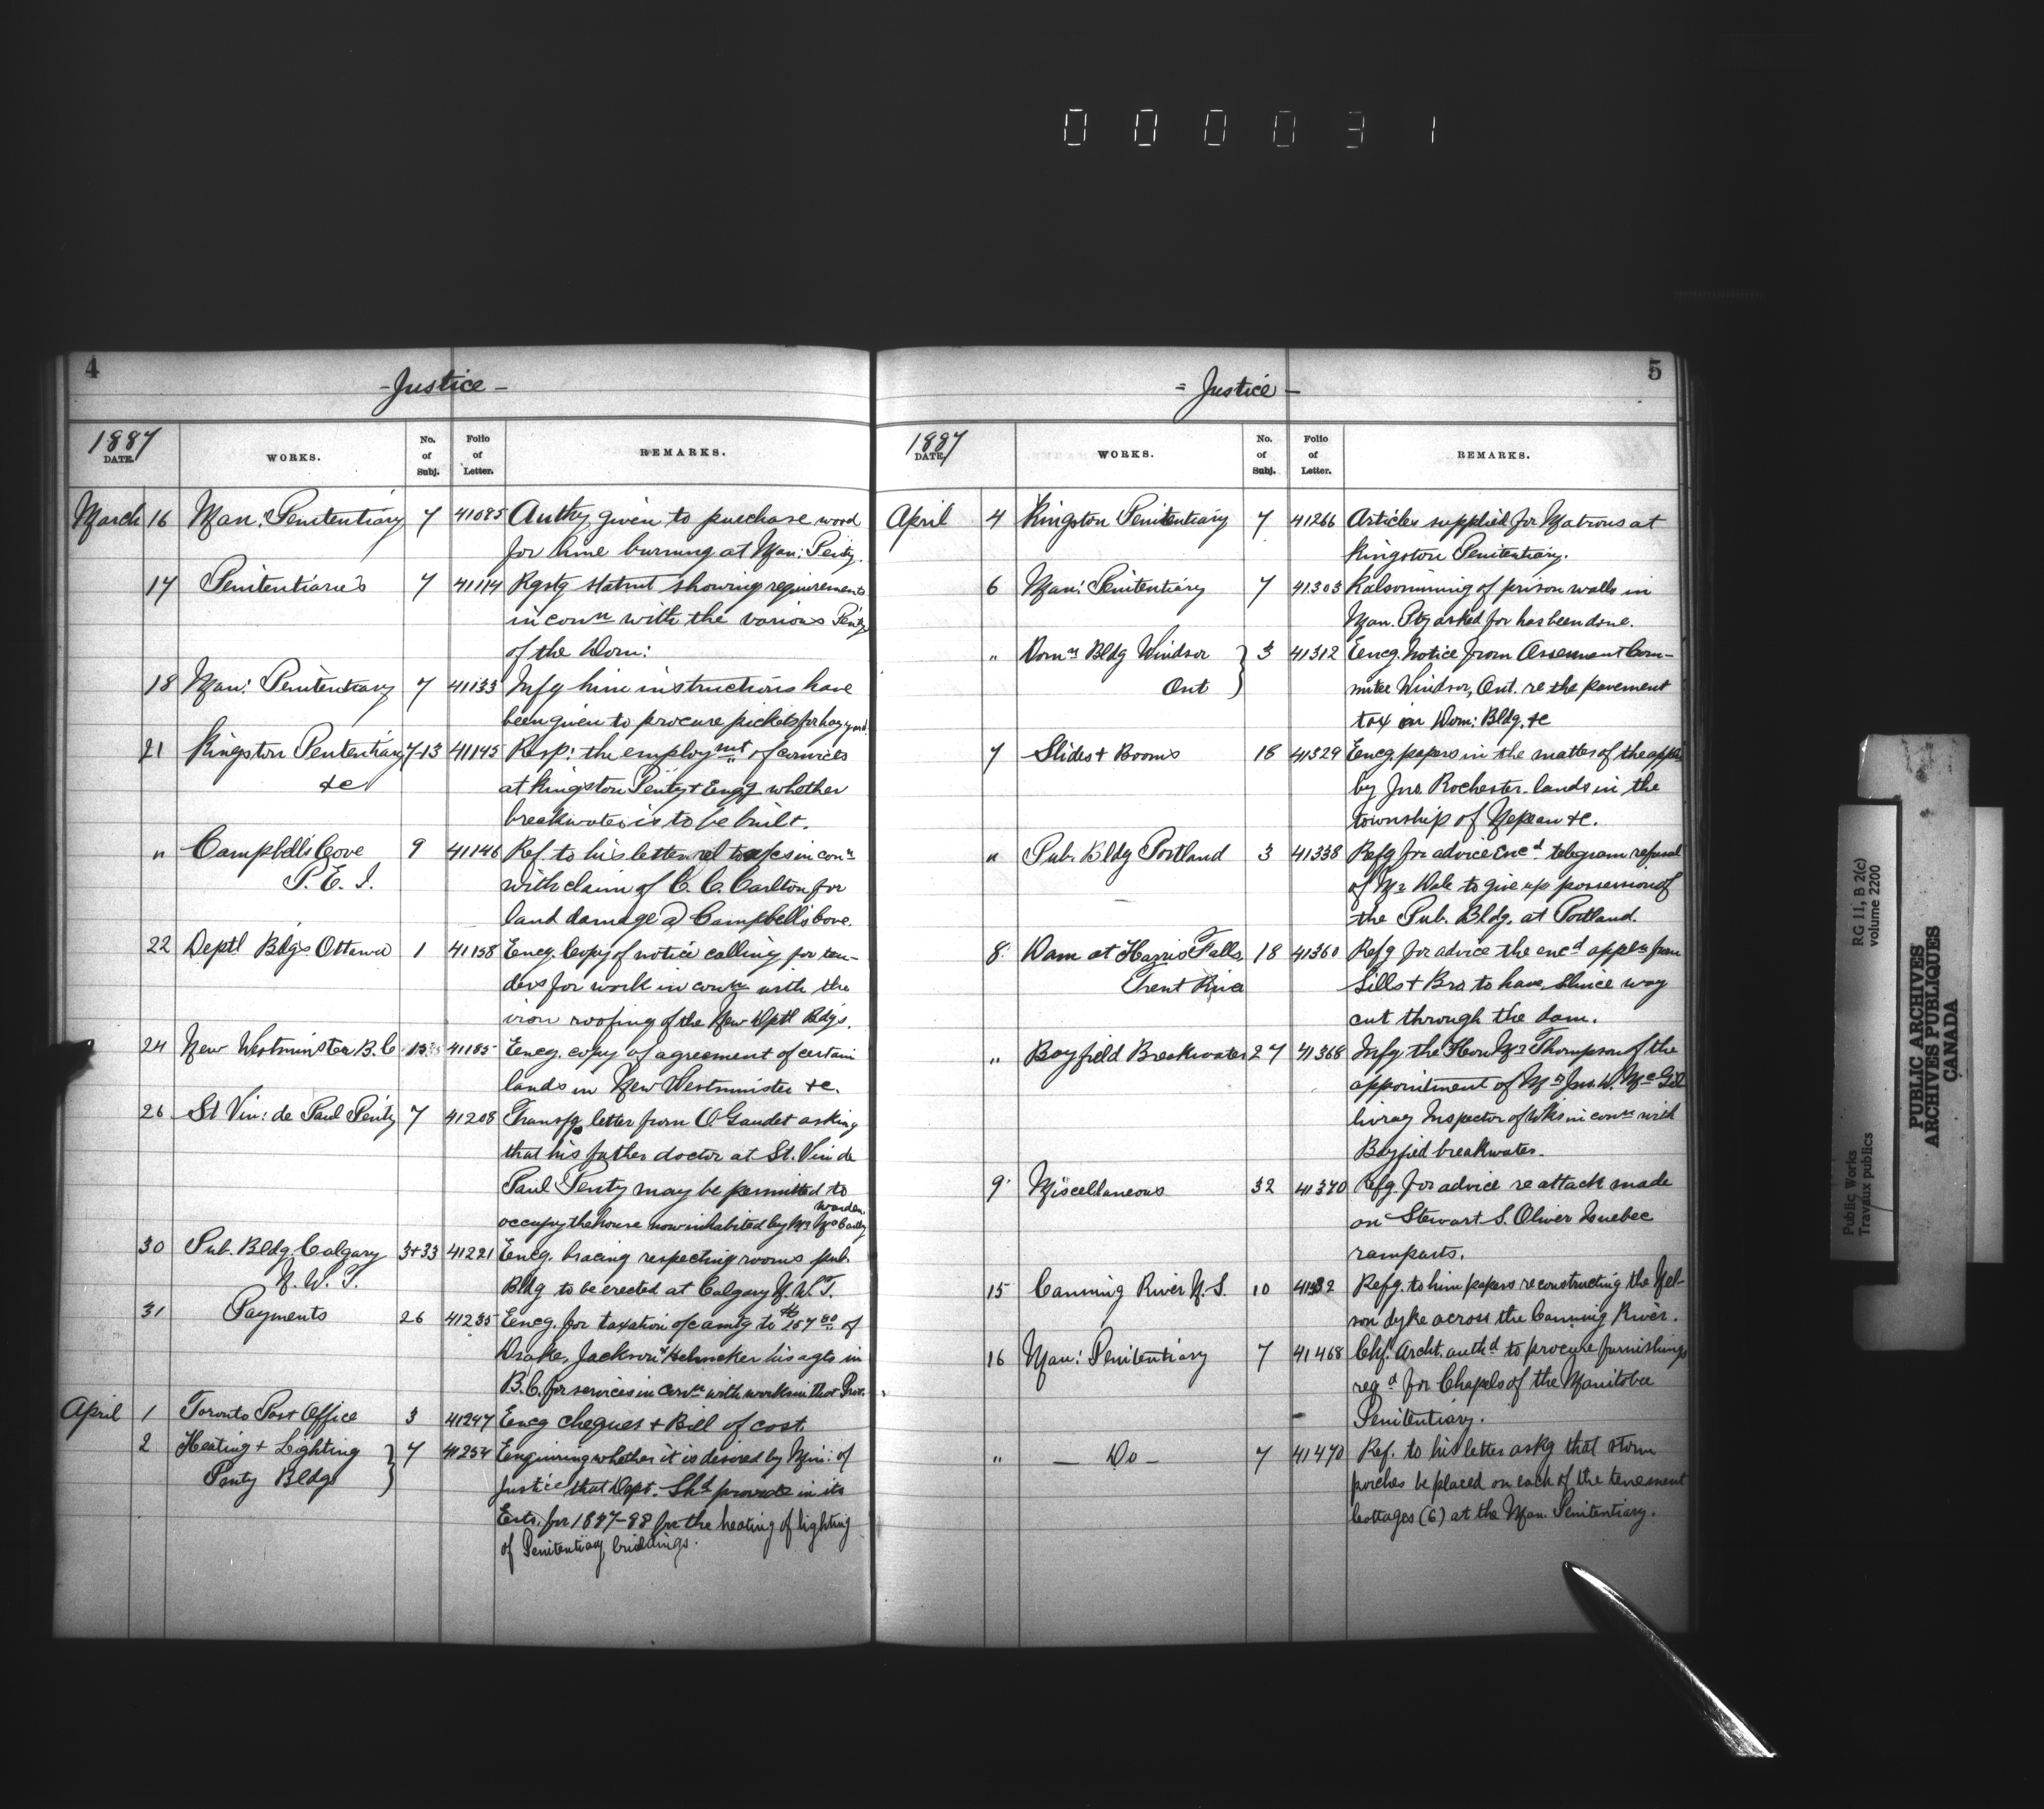 000031
4
- Justice -
1887
DATE. WORKS. No. of Subj. Folio of Letter. REMARKS.
March 16 Man: Penitentiary 7 41085 Authy given to purchase wood
for lime burning at Man: Penty.
17 Penitentiaries 7 41114 Rqstg statmt showing requirements
in conn with the various Penty
of the Dom:
18 Man: Penitentiary 7 41133 Infg him instructions have
been given to procure pickets for hay yard.
21 Kingston Penitentiary 7-13 41145 Resp: the employmnt of convicts
&c at Kingston Penty & Engg whether
breakwater is to be built.
" Campbell's Cove 9 41146 Ref. to his letter rel to exps in conn
P. E. I. with claim of C. C. Carlton for
land damage @ Campbell's Cove.
22 Deptl Bldgs Ottawa 1 41158 Encg. Copy of notice calling for ten-
ders for work in conn with the
iron roofing of the New Dptl Bldgs.
24 New Westminster B.C 13 41185 Encg. copy of agreement of certain
lands in New Westminster &c.
26 St Vin: de Paul Penty 7 41208 Transfg letter from O Gaudet asking
that his father doctor at St. Vin de
Paul Penty may be permitted to
occupy the house now inhabited by Mr McCarthy
warden
30 Pub. Bldg. Calgary 3+33 41221 Encg. tracing respecting rooms pub.
N. W. T. Bldg to be erected at Calgary N. W. T.
31 Payments 26 41235 Encg. for taxation of c amtg to $157.80 of
Drake, Jackson & Helmcken his agts in
B.C. for services in conn with works in that Prov.
April 1 Toronto Post Office 3 41247 Encg cheques & Bill of cost.
2 Heating & Lighting 7 41254 Enquiring whether it is desired by Min: of
Penty Bldgs Justice that Dept. Shd provide in its
Ests. for 1887-88 for the heating of lighting
of Penitentiary buildings.
5
= Justice -
1887
DATE. WORKS. No. of Subj. Folio of Letter. REMARKS.
April 4 Kingston Penitentiary 7 41266 Articles supplied for Matrons at
Kingston Penitentiary.
6 Man: Penitentiary 7 41303 Kalsomining of prison walls in
Man. Pty asked for has been done.
" Domn Bldg Windsor 3 41312 Encg. Notice from Assessment Com-
Ont mitee Windsor, Ont. re the pavement
tax on Dom: Bldg. &c
7 Slides & Booms 18 41329 Encg. papers in the matter of the appn
by Jno. Rochester lands in the
township of Nepean &c.
" Pub. Bldg Portland 3 41338 Refg for advice Encd telegram refusal
of Mr Dale to give up possession of
the Pub. Bldg. at Portland.
8 Dam at Harris Falls 18 41360 Refg for advice the encd appln from
Trent River Gills & Bro. to have Sluice way
cut through the dam.
" Bayfield Breakwater 27 41368 Infg the Hon Mr Thompson of the
appointment of Mr Jno. W. McGil
livray Inspector of Wks in conn with
Bayfied breakwater.
9 Miscellaneous 32 41370 Refg. for advice re attack made
on Stewart S. Oliver Quebec
ramparts.
15 Canning River N. S. 10 Refg. to him papers re constructing the Nel-
son dyke across the Canning River.
16 Man: Penitentiary 7 41468 Chf. Archt. authd to procure furnishings
reqd for Chapels of the Manitoba
Penitentiary.
" — Do — 7 41470 Ref. to his letter askg that storm
porches be placed on each of the tenement
Cottages (6) at the Man. Penitentiary.
Public Works
Travaux publics
RG 11, B 2(c)
volume 2200
PUBLIC ARCHIVES
ARCHIVES PUBLIQUES
CANADA